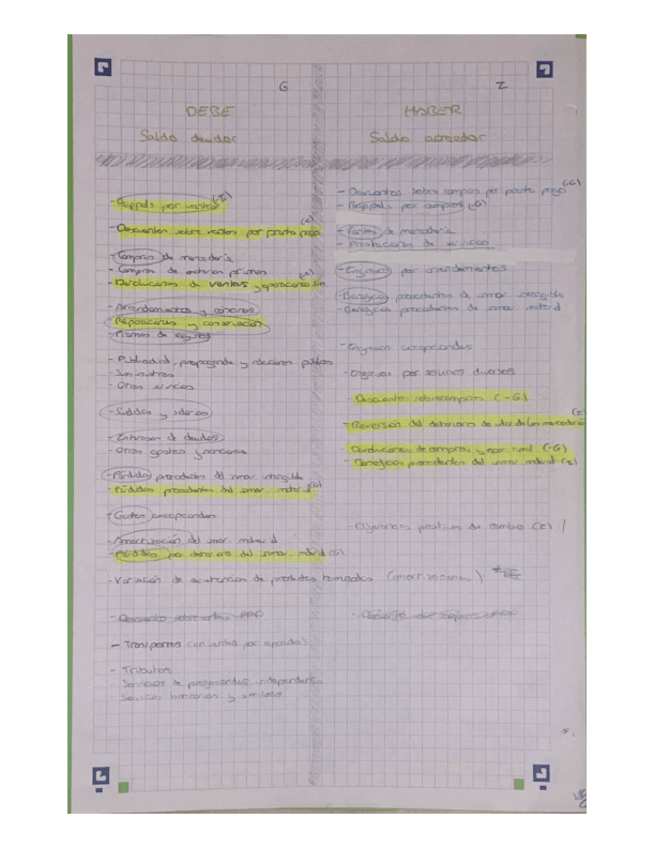 G
I
DEBE
HABER
Saldo deudor
Saldo acreedor
- Rappels por ventas (-I)
- Descuentos sobre ventas por pronto pago
- Compras de mercadería
- Compras de materias primas
- Devoluciones de ventas y operaciones
- Arrendamientos y cánones
Reparaciones y conservación
- Primas de seguros
- Publicidad, propaganda y relaciones públicas
- Suministros
- Otros servicios
- Sueldos y salarios
- Intereses de deudas
- Otros gastos financieros
- Pérdidas procedentes del inmov. intangible
- Pérdidas procedentes del inmov. material
- Gastos excepcionales
- Amortización del inmov. material
- Pérdidas por deterioro del inmov. material (G)
- Variación de existencias de productos terminados
- Transportes (en ventas por
- Tributos
- Servicios de profesionales independientes
- Servicios bancarios y similares
- Descuentos sobre compras por pronto pago (-G)
- Rappels por compras (-G)
- Ventas de mercadería
- Prestaciones de servicios
- Ingresos por arrendamientos
- Beneficios procedentes de inmov. intangible
- Beneficios procedentes de inmov. material
- Ingresos excepcionales
- Ingresos por servicios diversos
- Descuentos sobre compras (-G)
- Reversión del deterioro de
- Devoluciones de compras y oper. (-G)
- Beneficios procedentes del inmov. material (I)
- Diferencias positivas de cambio (I)